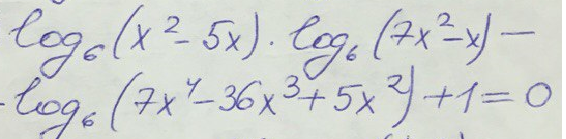 log₆(x² - 5x) · log₆(7x² - x) -
- log₆(7x⁴ - 36x³ + 5x²) + 1 = 0